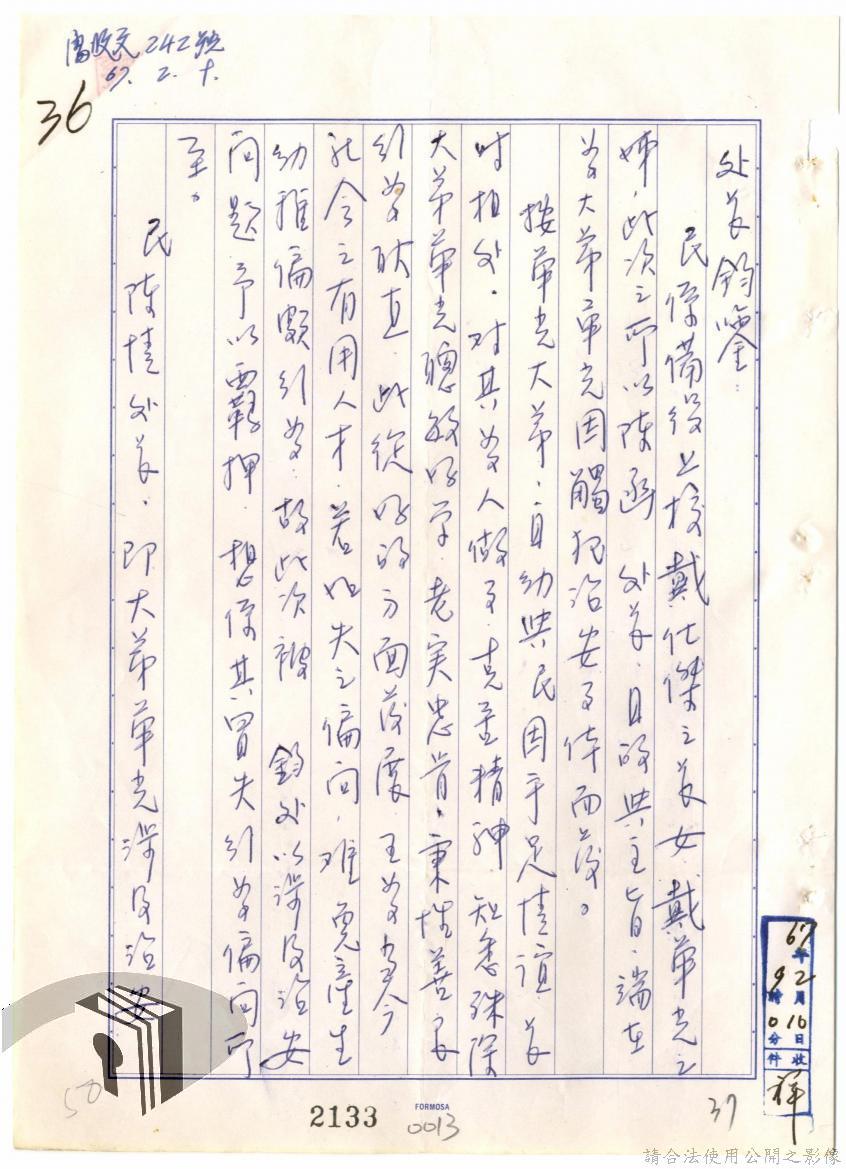 富收文242號
67. 2. 十.
36
处長鈞鑒：
民係備役上校戴仕傑之長女戴華光之
姊．此次之所以陳函 处長．目的與主旨．端在
為大弟華光因觸犯治安事件而發。
按華光大弟．自幼與民因手足情誼長
時相处．对其為人做事．克盡精神 知悉殊深
大弟華光聰敏好学．老实忠肯．秉性善良
行為耿直．此從好的方面發展 
社会之有用人才．若如失之偏向．难免產生
幼稚偏頗行為．故此次被 鈞处以涉及治安
问题．予以覊押．想係其冒失行為偏向所
至。
民陳情处長．即大弟華光涉及治安
67年2月10日收
9時0分件
50
2133
FORMOSA
0013
37
請合法使用公開之影像